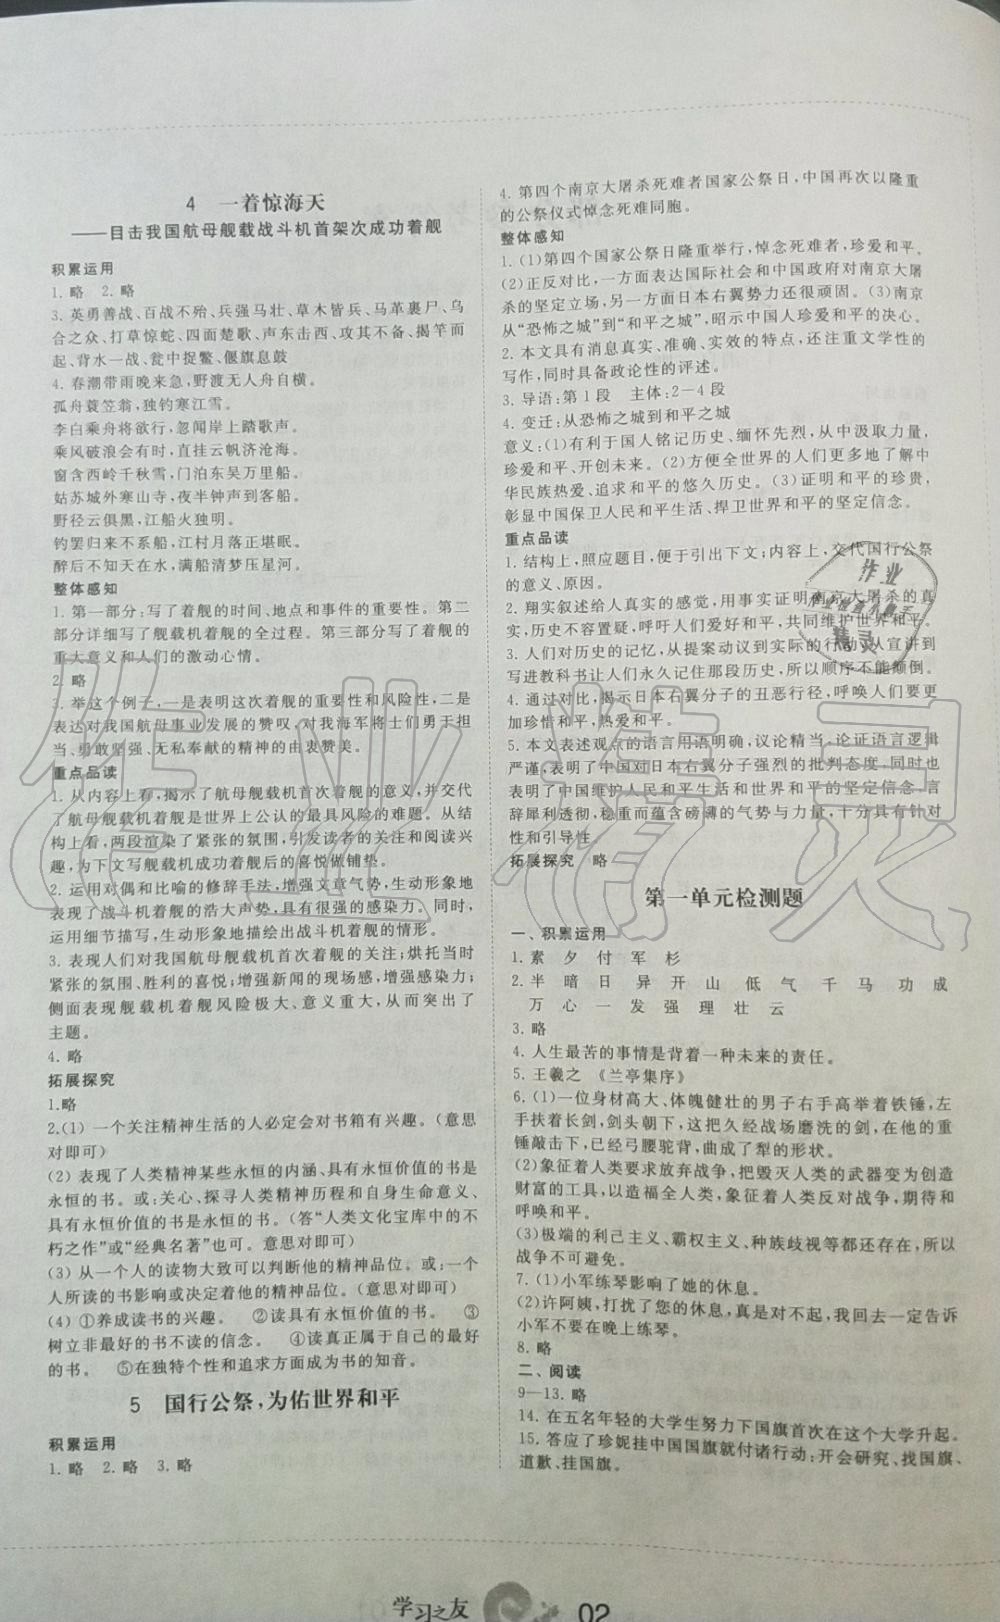 4 一着惊海天
——目击我国航母舰载战斗机首架次成功着舰
积累运用
1. 略 2. 略
3. 英勇善战、百战不殆、兵强马壮、草木皆兵、马革裹尸、乌
合之众、打草惊蛇、四面楚歌、声东击西、攻其不备、揭竿而
起、背水一战、瓮中捉鳖、偃旗息鼓
4. 春潮带雨晚来急，野渡无人舟自横。
孤舟蓑笠翁，独钓寒江雪。
李白乘舟将欲行，忽闻岸上踏歌声。
乘风破浪会有时，直挂云帆济沧海。
窗含西岭千秋雪，门泊东吴万里船。
姑苏城外寒山寺，夜半钟声到客船。
野径云俱黑，江船火独明。
钓罢归来不系船，江村月落正堪眠。
醉后不知天在水，满船清梦压星河。
整体感知
1. 第一部分：写了着舰的时间、地点和事件的重要性。第二
部分详细写了舰载机着舰的全过程。第三部分写了着舰的
重大意义和人们的激动心情。
2. 略
3. 举这个例子，一是表明这次着舰的重要性和风险性，二是
表达对我国航母事业发展的赞叹，对我海军将士们勇于担
当、勇敢坚强、无私奉献的精神的由衷赞美。
重点品读
1. 从内容上看，揭示了航母舰载机首次着舰的意义，并交代
了航母舰载机着舰是世界上公认的最具风险的难题。从结
构上看，两段渲染了紧张的氛围，引发读者的关注和阅读兴
趣，为下文写舰载机成功着舰后的喜悦做铺垫。
2. 运用对偶和比喻的修辞手法，增强文章气势，生动形象地
表现了战斗机着舰的浩大声势，具有很强的感染力。同时，
运用细节描写，生动形象地描绘出战斗机着舰的情形。
3. 表现人们对我国航母舰载机首次着舰的关注；烘托当时
紧张的氛围、胜利的喜悦；增强新闻的现场感，增强感染力；
侧面表现舰载机着舰风险极大、意义重大，从而突出了
主题。
4. 略
拓展探究
1.略
2.(1) 一个关注精神生活的人必定会对书籍有兴趣。(意思
对即可)
(2) 表现了人类精神某些永恒的内涵、具有永恒价值的书是
永恒的书。或：关心、探寻人类精神历程和自身生命意义、
具有永恒价值的书是永恒的书。(答“人类文化宝库中的不
朽之作”或“经典名著”也可。意思对即可)
(3) 从一个人的读物大致可以判断他的精神品位。或：一个
人所读的书影响或决定着他的精神品位。(意思对即可)
(4) ①养成读书的兴趣。 ②读具有永恒价值的书。 ③
树立非最好的书不读的信念。 ④读真正属于自己的最好
的书。 ⑤在独特个性和追求方面成为书的知音。
5 国行公祭，为佑世界和平
积累运用
1. 略 2. 略 3. 略
4. 第四个南京大屠杀死难者国家公祭日，中国再次以隆重
的公祭仪式悼念死难同胞。
整体感知
1. (1)第四个国家公祭日隆重举行，悼念死难者，珍爱和平。
(2)正反对比，一方面表达国际社会和中国政府对南京大屠
杀的坚定立场，另一方面日本右翼势力还很顽固。(3)南京
从“恐怖之城”到“和平之城”，昭示中国人珍爱和平的决心。
2. 本文具有消息真实、准确、实效的特点，还注重文学性的
写作，同时具备政论性的评述。
3. 导语：第1段 主体：2—4段
4. 变迁：从恐怖之城到和平之城
意义：(1)有利于国人铭记历史、缅怀先烈，从中汲取力量，
珍爱和平、开创未来。(2)方便全世界的人们更多地了解中
华民族热爱、追求和平的悠久历史。(3)证明和平的珍贵，
彰显中国保卫人民和平生活、捍卫世界和平的坚定信念。
重点品读
1. 结构上，照应题目，便于引出下文；内容上，交代国行公祭
的意义、原因。
2. 翔实叙述给人真实的感觉，用事实证明南京大屠杀的真
实，历史不容置疑，呼吁人们爱好和平，共同维护世界和平。
3. 人们对历史的记忆，从提案动议到实际的行动，从宣讲到
写进教科书让人们永久记住那段历史，所以顺序不能颠倒。
4. 通过对比，揭示日本右翼分子的丑恶行径，呼唤人们要更
加珍惜和平，热爱和平。
5. 本文表述观点的语言用语明确，议论精当，论证语言逻辑
严谨，表明了中国对日本右翼分子强烈的批判态度，同时也
表明了中国维护人民和平生活和世界和平的坚定信念，言
辞犀利透彻，稳重而蕴含磅礴的气势与力量，十分具有针对
性和引导性
拓展探究 略
第一单元检测题
一、积累运用
1. 素 夕 付 军 杉
2. 半 暗 日 异 开 山 低 气 千 马 功 成
万 心 一 发 强 理 壮 云
3. 略
4. 人生最苦的事情是背着一种未来的责任。
5. 王羲之 《兰亭集序》
6. (1)一位身材高大、体魄健壮的男子右手高举着铁锤，左
手扶着长剑，剑头朝下，这把久经战场磨洗的剑，在他的重
锤敲击下，已经弓腰驼背，曲成了犁的形状。
(2)象征着人类要求放弃战争，把毁灭人类的武器变为创造
财富的工具，以造福全人类，象征着人类反对战争，期待和
呼唤和平。
(3)极端的利己主义、霸权主义、种族歧视等都还存在，所以
战争不可避免。
7. (1)小军练琴影响了她的休息。
(2)许阿姨，打扰了您的休息，真是对不起，我回去一定告诉
小军不要在晚上练琴。
8. 略
二、阅读
9—13. 略
14. 在五名年轻的大学生努力下国旗首次在这个大学升起。
15. 答应了珍妮挂中国国旗就付诸行动：开会研究、找国旗、
道歉、挂国旗。
作业
精灵
作业精灵
学习之友
02